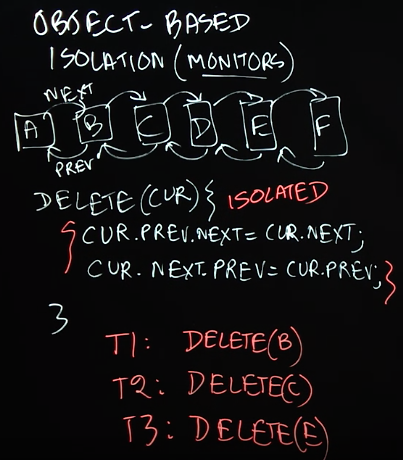 OBJECT-BASED
ISOLATION (MONITORS)
NEXT
A B C D E F
PREV
DELETE(CUR){ ISOLATED
{ CUR.PREV.NEXT= CUR.NEXT;
CUR. NEXT.PREV= CUR.PREV; }
}
T1: DELETE(B)
T2: DELETE(C)
T3: DELETE(E)